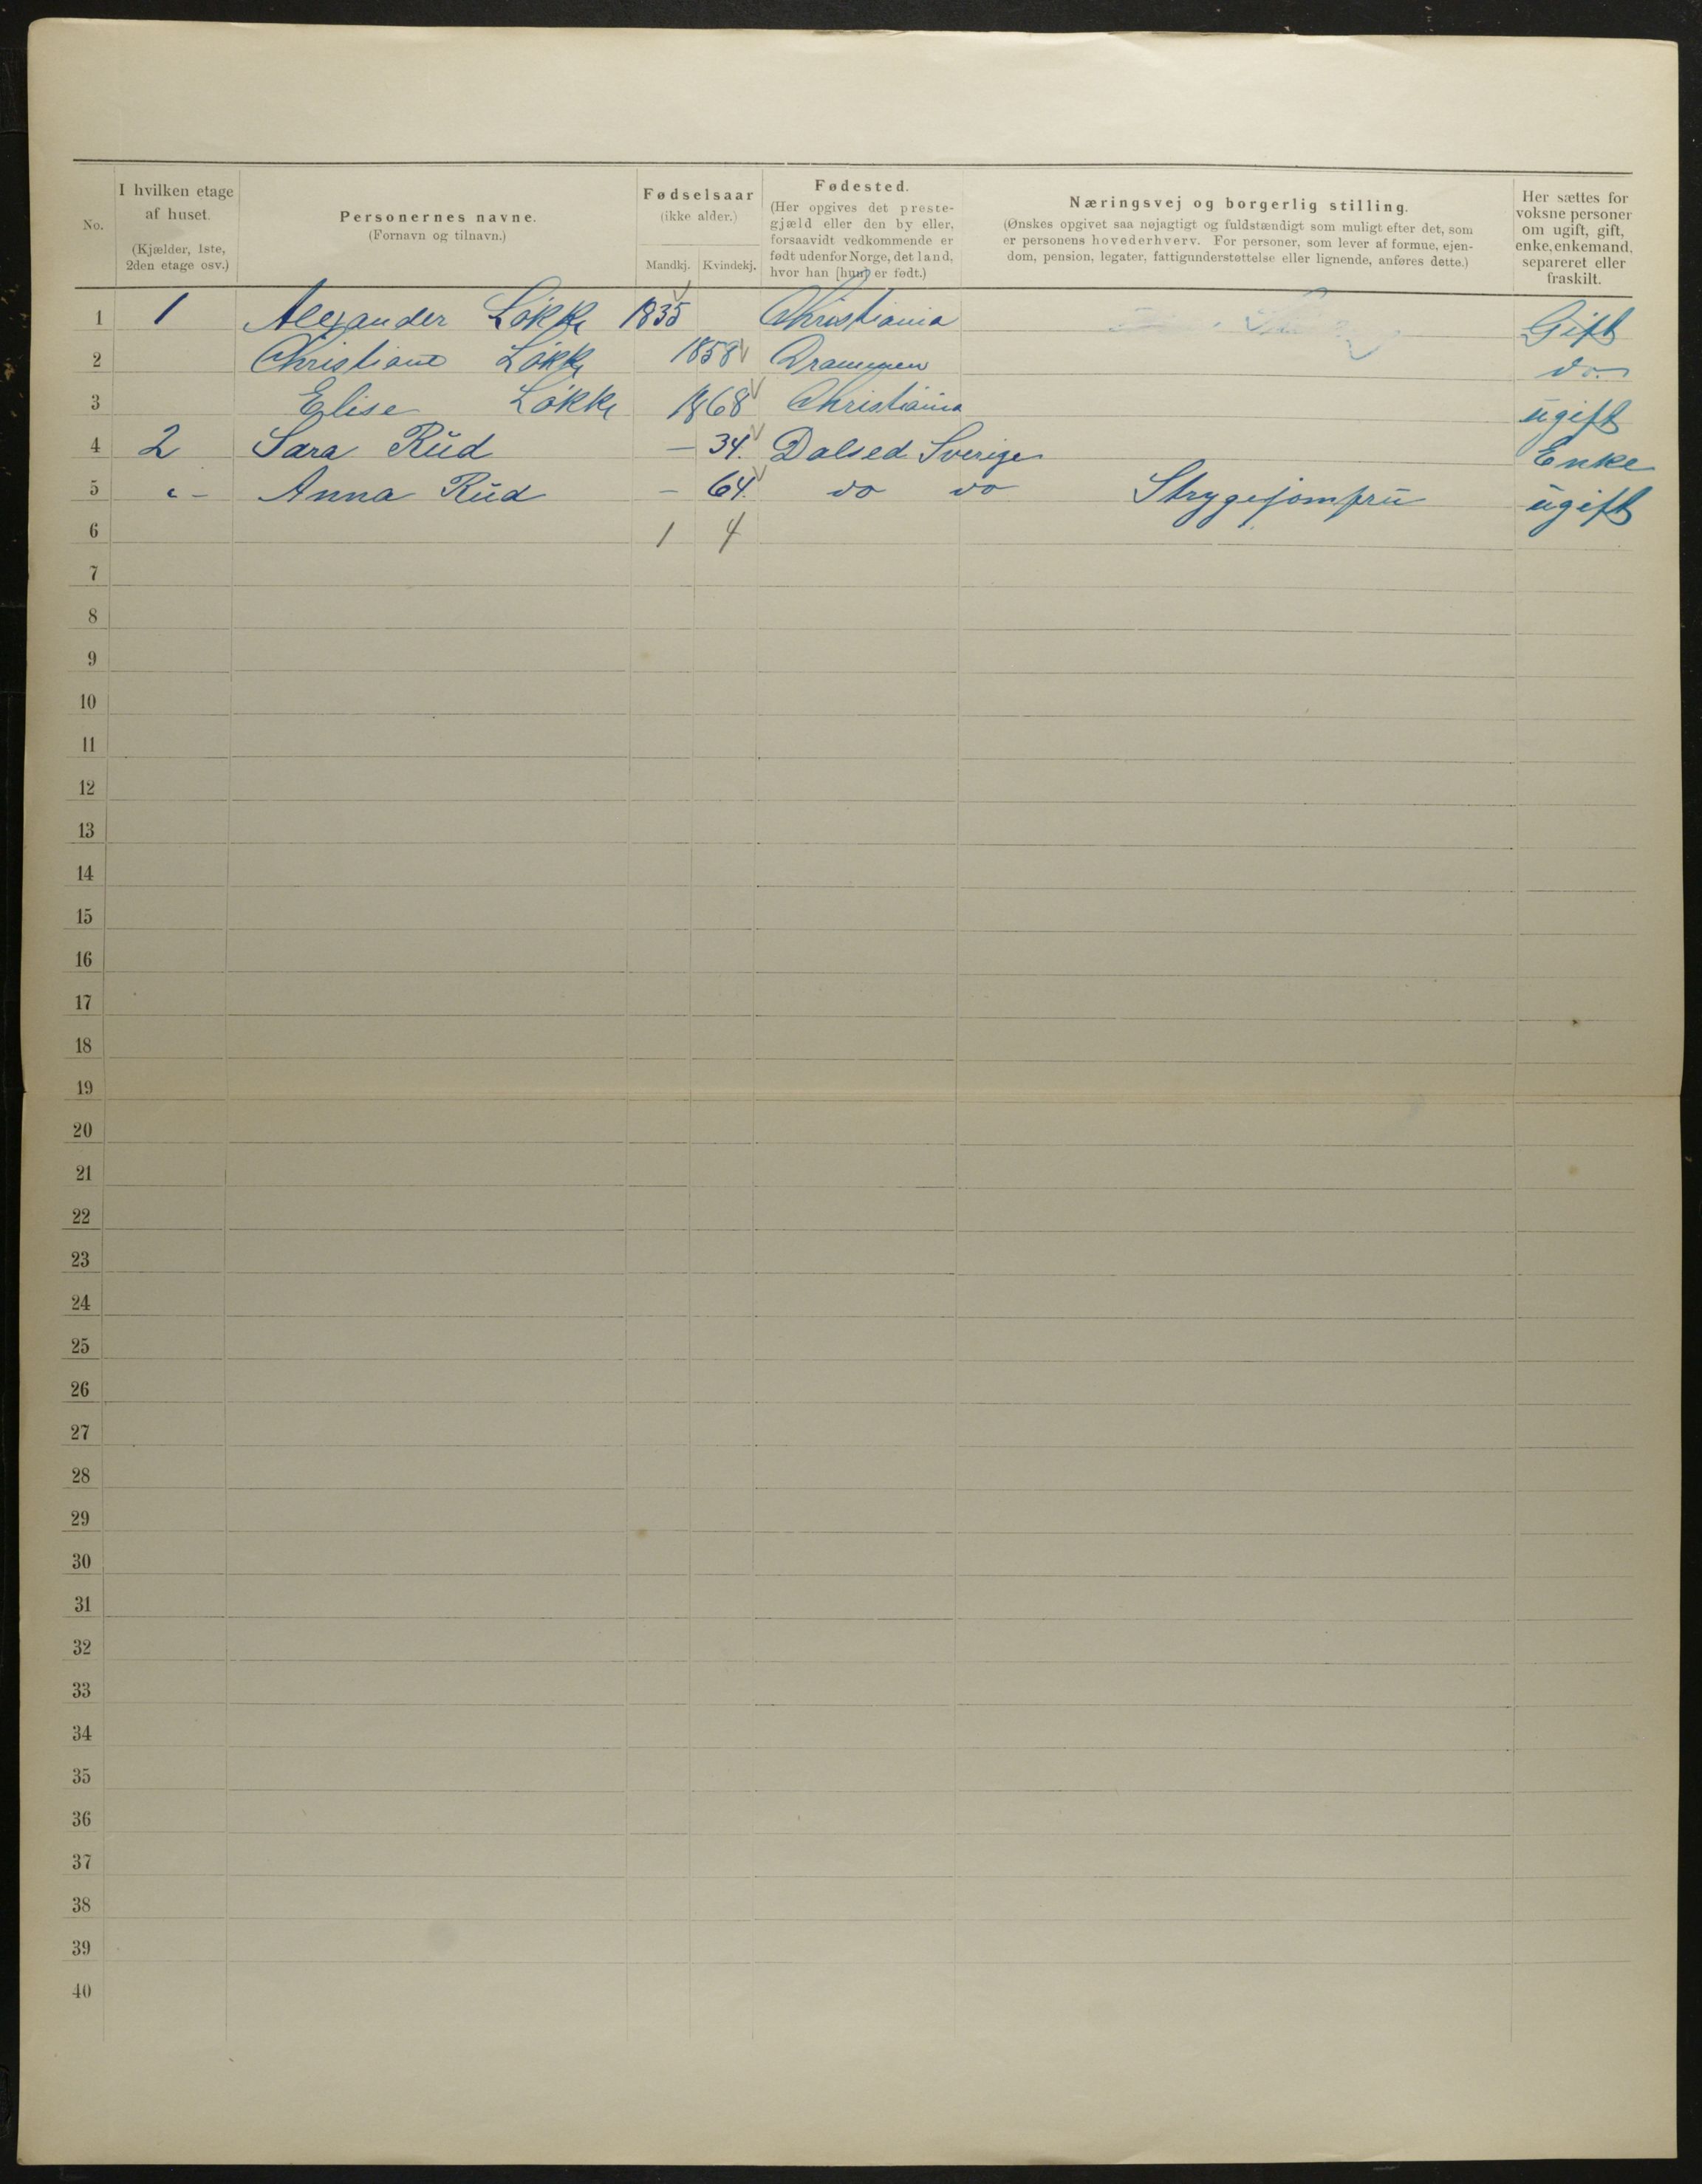 No.
I hvilken etage
af huset.
(Kjælder, 1ste,
2den etage osv.)
Personernes navne.
(Fornavn og tilnavn.)
Fødselsaar
(ikke alder.)
Mandkj. Kvindekj.
Fødested.
(Her opgives det preste-
gjæld eller den by eller,
forsaavidt vedkommende er
født udenfor Norge, det land,
hvor han [hun] er født.)
Næringsvej og borgerlig stilling.
(Ønskes opgivet saa nøjagtigt og fuldstændigt som muligt efter det, som
er personens hovederhverv. For personer, som lever af formue, ejen-
dom, pension, legater, fattigunderstøttelse eller lignende, anføres dette.)
Her sættes for
voksne personer
om ugift, gift,
enke, enkemand,
separeret eller
fraskilt.
1 1 Alexander Løkke 1835 Christiania Gift
2 Christiane Løkke 1858 Drammen do.
3 Elise Løkke 1868 Christiania ugift
4 2 Sara Rud — 34. Dalsed Sverige Enke
5 " - Anna Rud — 64. do do Strygejomfru ugift
6 1 4
7
8
9
10
11
12
13
14
15
16
17
18
19
20
21
22
23
24
25
26
27
28
29
30
31
32
33
34
35
36
37
38
39
40